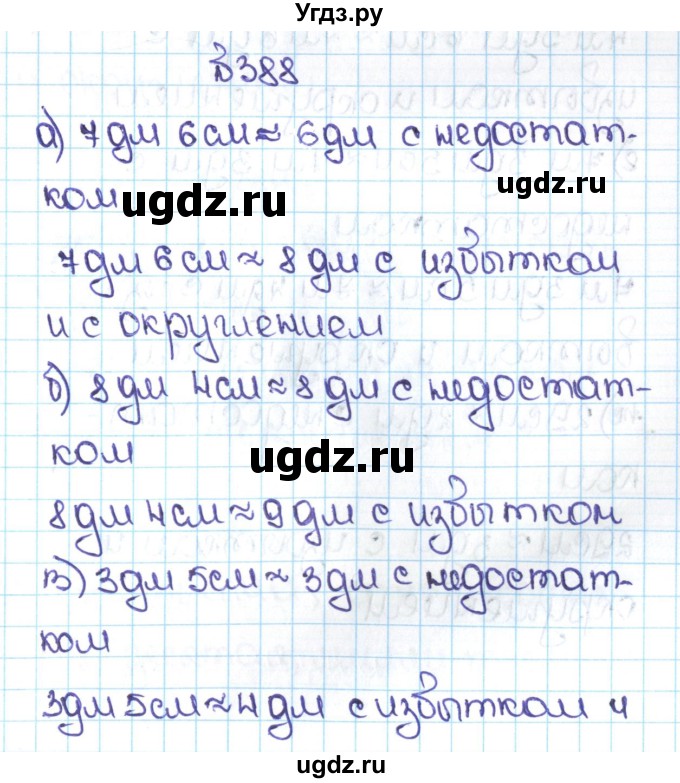 Угдз.ру
В388
а) 7 дм 6 см ≈ 6 дм с недостат-
ком
ugdz.ru
ugdz.ru
7 дм 6 см ≈ 8 дм с избытком
и с округлением
б) 8 дм 4 см ≈ 8 дм с недостат-
ком
ugdz.ru
8 дм 4 см ≈ 9 дм с избытком
в) 3 дм 5 см ≈ 3 дм с недостат-
ком
3 дм 5 см ≈ 4 дм с избытком и
ugdz.ru